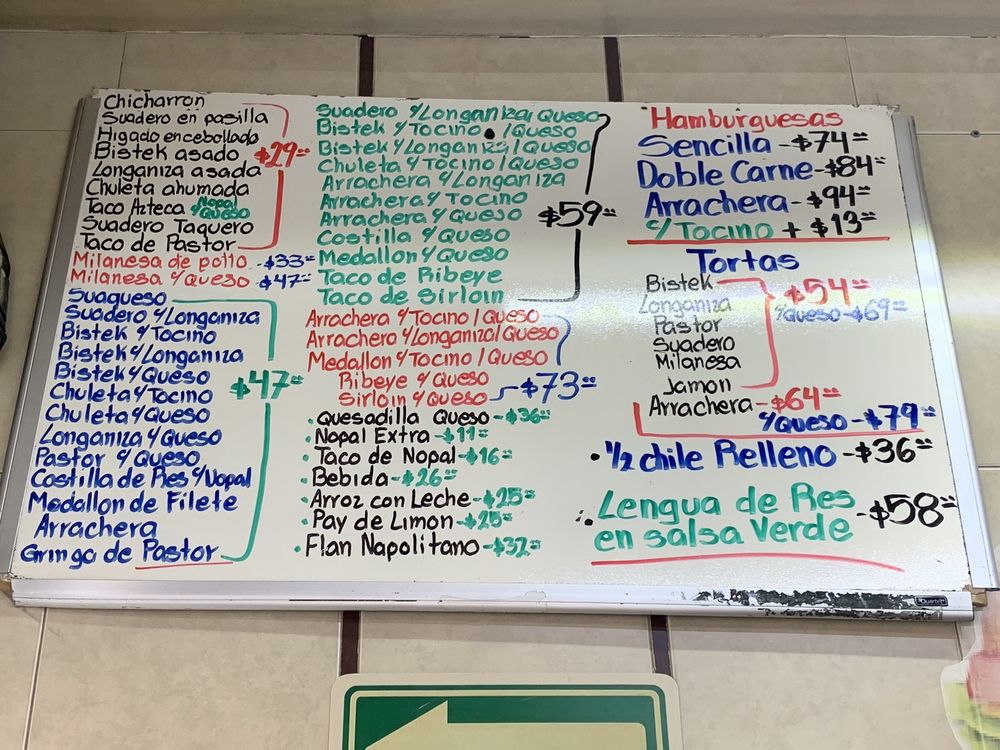 Chicharron
Suadero en pasilla
Higado encebollado
Bistek asado $29.00
Longaniza asada
Chuleta ahumada
Taco Azteca Nopal y/Queso
Suadero Taquero
Taco de Pastor
Milanesa de pollo - $33.00
Milanesa y/Queso - $47.00
Suaqueso
Suadero y/Longaniza
Bistek y/Tocino
Bistek y/Longaniza
Bistek y/Queso $47.00
Chuleta y/Tocino
Chuleta y/Queso
Longaniza y/Queso
Pastor y/Queso
Costilla de Res y/Nopal
Medallon de Filete
Arrachera
Gringa de Pastor
Suadero y/Longaniza/Queso
Bistek y/Tocino/Queso
Bistek y/Longaniza/Queso
Chuleta y/Tocino/Queso
Arrachera y/Longaniza
Arrachera y/Tocino
Arrachera y/Queso $59.00
Costilla y/Queso
Medallon y/Queso
Taco de Ribeye
Taco de Sirloin
Arrachera y/Tocino/Queso
Arrachera y/Longaniza/Queso
Medallon y/Tocino/Queso
Ribeye y/Queso $73.00
Sirloin y/Queso
• Quesadilla Queso - $36.00
• Nopal Extra - $11.00
• Taco de Nopal - $16.00
• Bebida - $26.00
• Arroz con Leche - $25.00
• Pay de Limon - $25.00
• Flan Napolitano - $32.00
Hamburguesas
Sencilla - $74.00
Doble Carne - $84.00
Arrachera - $94.00
c/Tocino + $13.00
Tortas
Bistek $54.00
Longaniza y/Queso - $69.00
Pastor
Suadero
Milanesa
Jamon
Arrachera - $64.00
y/Queso - $79.00
• 1/2 chile Relleno - $36.00
Lengua de Res - $58.00
en salsa Verde
Quartet